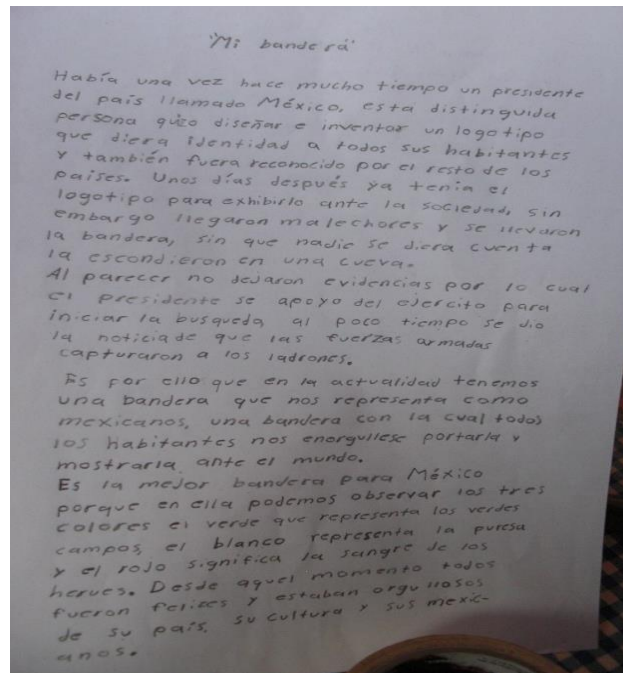 "Mi banderá"
Había una vez hace mucho tiempo un presidente
del país llamado México, esta distinguida
persona quizo diseñar e inventar un logotipo
que diera identidad a todos sus habitantes
y también fuera reconocido por el resto de los
paises. Unos días después ya tenia el
logotipo para exhibirlo ante la sociedad, sin
embargo llegaron malechores y se llevaron
la bandera, sin que nadie se diera cuenta
la escondieron en una cueva.
Al parecer no dejaron evidencias por lo cual
el presidente se apoyo del ejercito para
iniciar la busqueda, al poco tiempo se dio
la noticia de que las fuerzas armadas
capturaron a los ladrones.
Es por ello que en la actualidad tenemos
una bandera que nos representa como
mexicanos, una bandera con la cual todos
los habitantes nos enorgullese portarla y
mostrarla ante el mundo.
Es la mejor bandera para México
porque en ella podemos observar los tres
colores el verde que representa los verdes
campos, el blanco representa la puresa
y el rojo significa la sangre de los
herues. Desde aquel momento todos
fueron felizes y estaban orgullosos
de su país, su cultura y sus mexic-
anos.